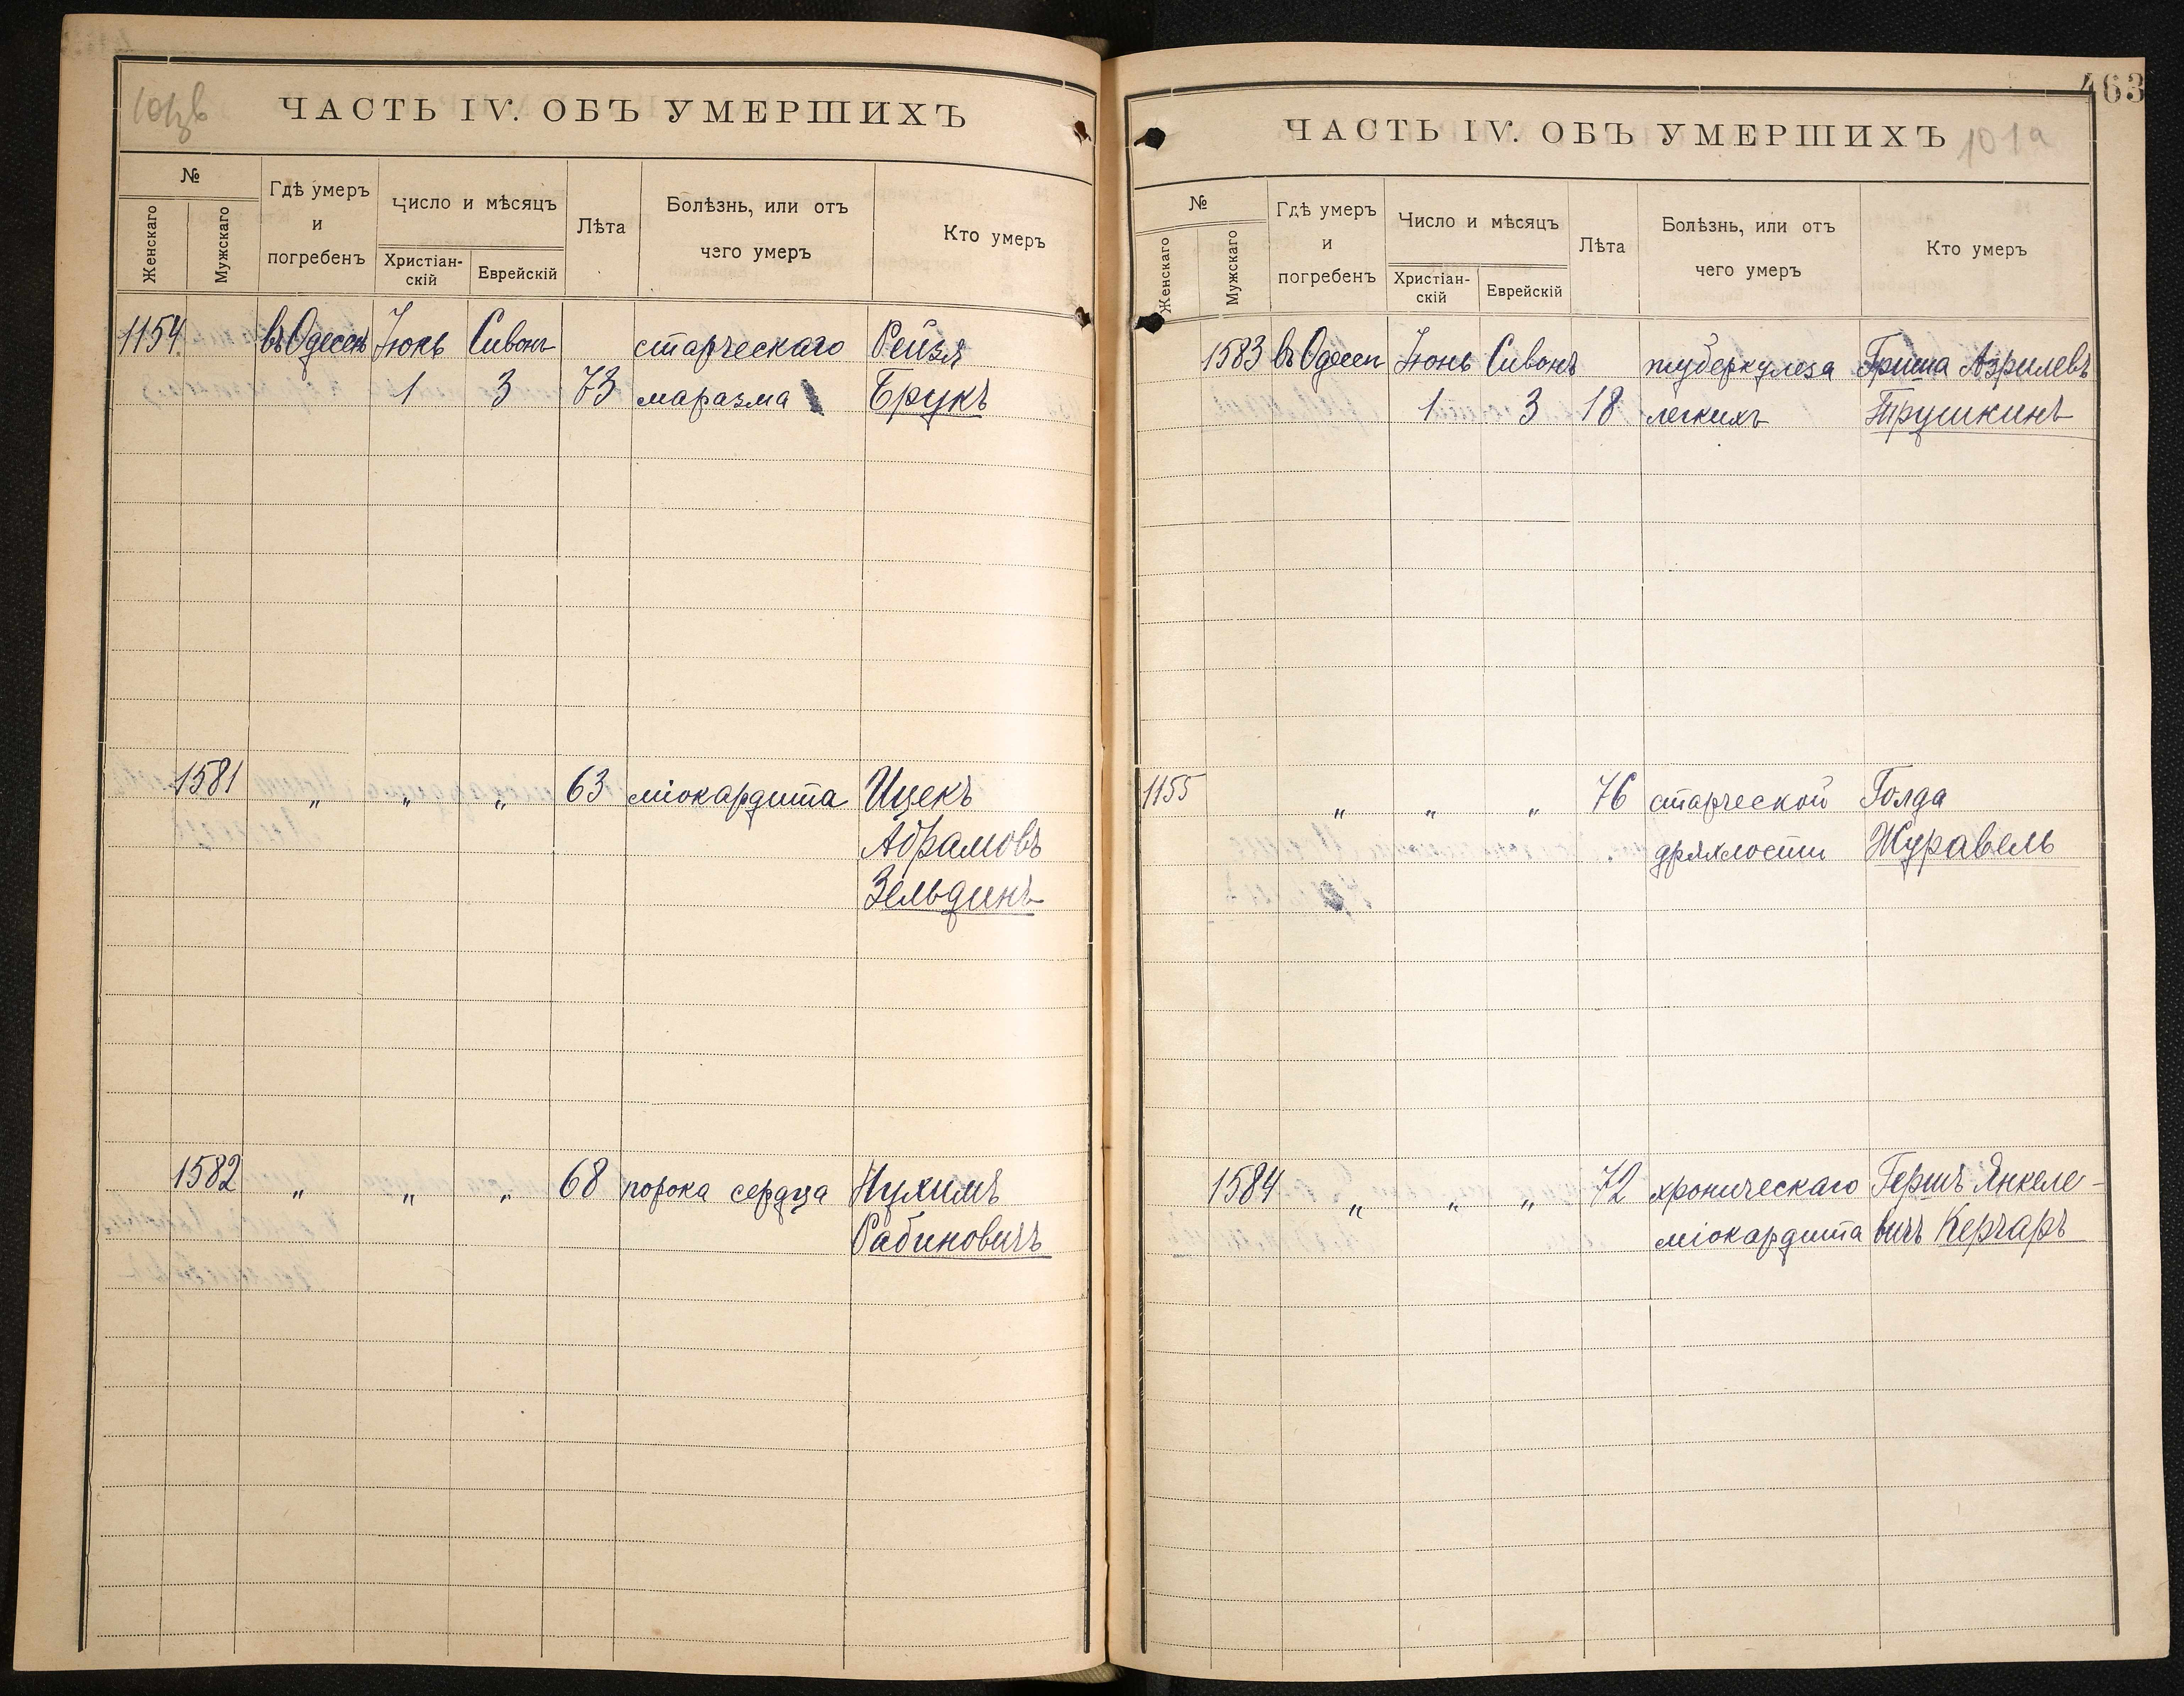 ЧАСТЬ IV. ОБЪ УМЕРШИХЪ
№
Женскаго
Мужскаго
Гдѣ умеръ
и
погребенъ
Число и мѣсяцъ
Христіан-
скій
Еврейскій
Лѣта
Болѣзнь, или отъ
чего умеръ
Кто умеръ
1154 въ Одессѣ Іюнь Сивонъ старческаго Рейзя
1 3 73 маразма Брукъ
1581 " " " 63 міокардита Ицекъ
Абрамовъ
Зельдинъ
1582 " " " 68 порока сердца Нухимъ
Рабиновичъ
463
ЧАСТЬ IV. ОБЪ УМЕРШИХЪ 101а
№
Женскаго
Мужскаго
Гдѣ умеръ
и
погребенъ
Число и мѣсяцъ
Христіан-
скій
Еврейскій
Лѣта
Болѣзнь, или отъ
чего умеръ
Кто умеръ
1583 въ Одессѣ Іюнь Сивонъ туберкулеза Гриша Азрилевъ
1 3 18 легкихъ Трушкинъ
1155 " " " 76 старческой Голда
дряхлости Журавель
1584 " " " 72 хроническаго Гершъ Янкеле-
міокардита вичъ Керчаръ